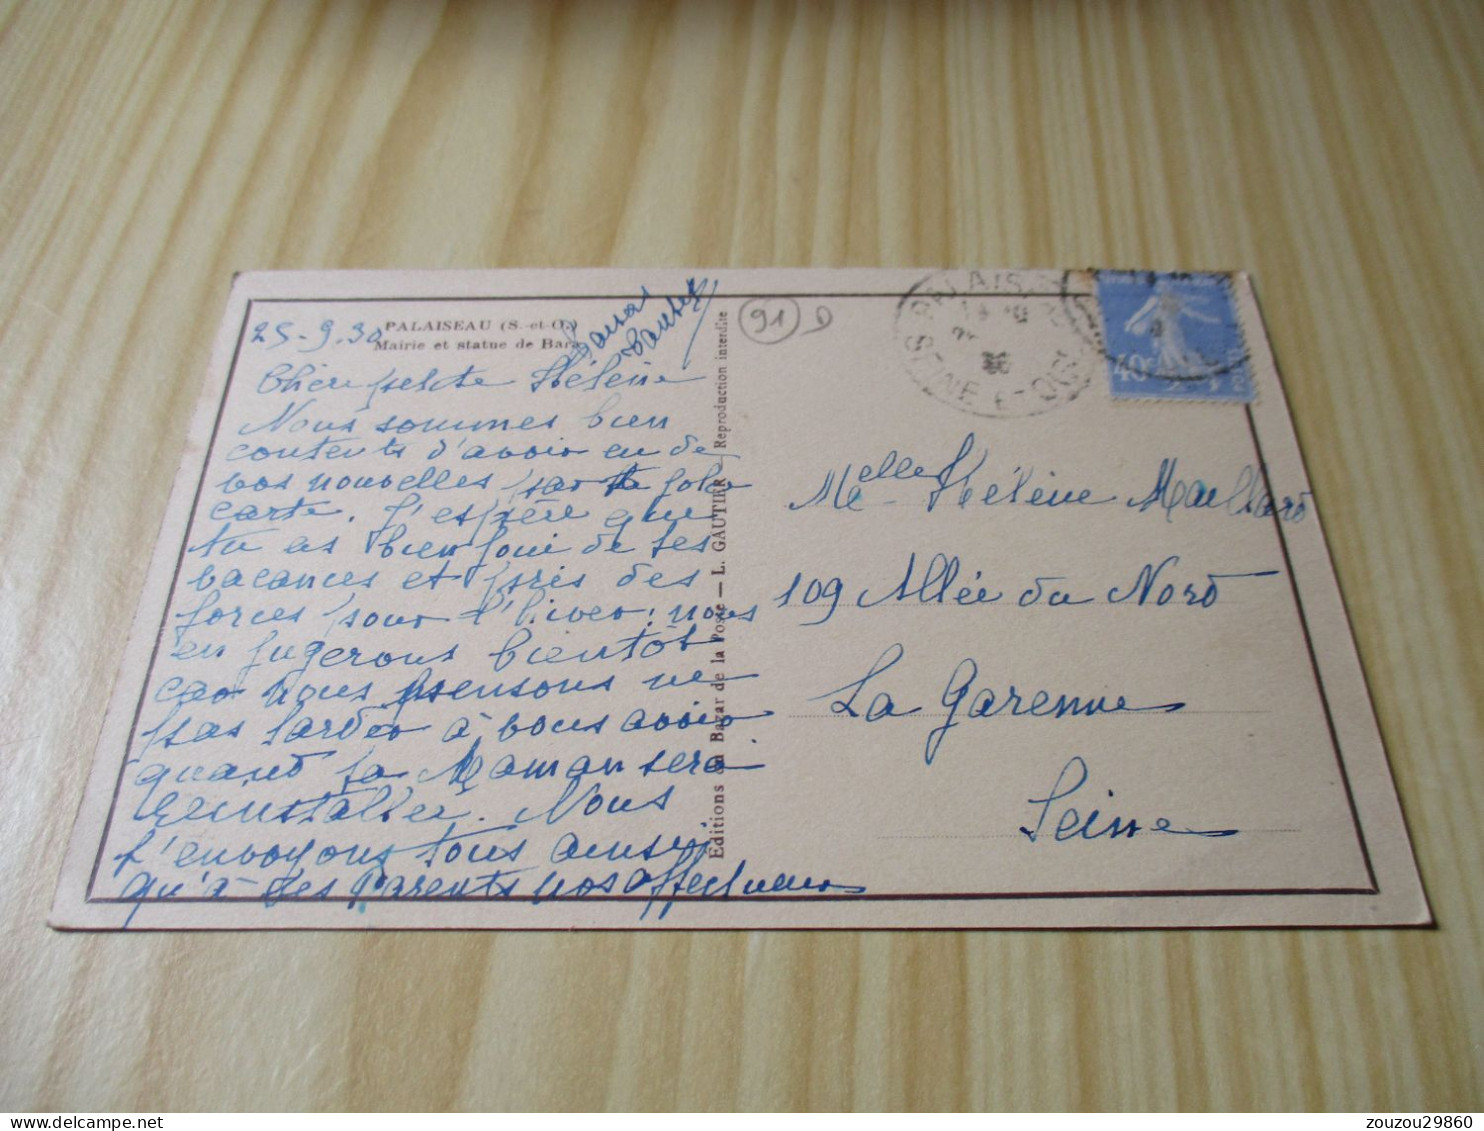 25-9.30
PALAISEAU (S.-et-O.)
Mairie et statue de Bara
Chère petite Hélène
Nous sommes bien
contents d'avoir eu de
vos nouvelles par ta jolie
carte. J'espère que
tu as bien joui de tes
vacances et pris des
forces pour l'hiver: nous
en jugerons bientôt
car nous pensons ne
pas tarder à vous avoir
quand ta Maman sera
réinstallée. Nous
t'envoyons tous ainsi
qu'à tes Parents nos affectueux
baisers
Editions du Bazar de la Poste — L. GAUTIER Reproduction interdite
91 D
PALAISEAU
SEINE-ET-OISE
40c
Melle Hélène Maillard
109 Allée du Nord
La Garenne
Seine
zouzou29860